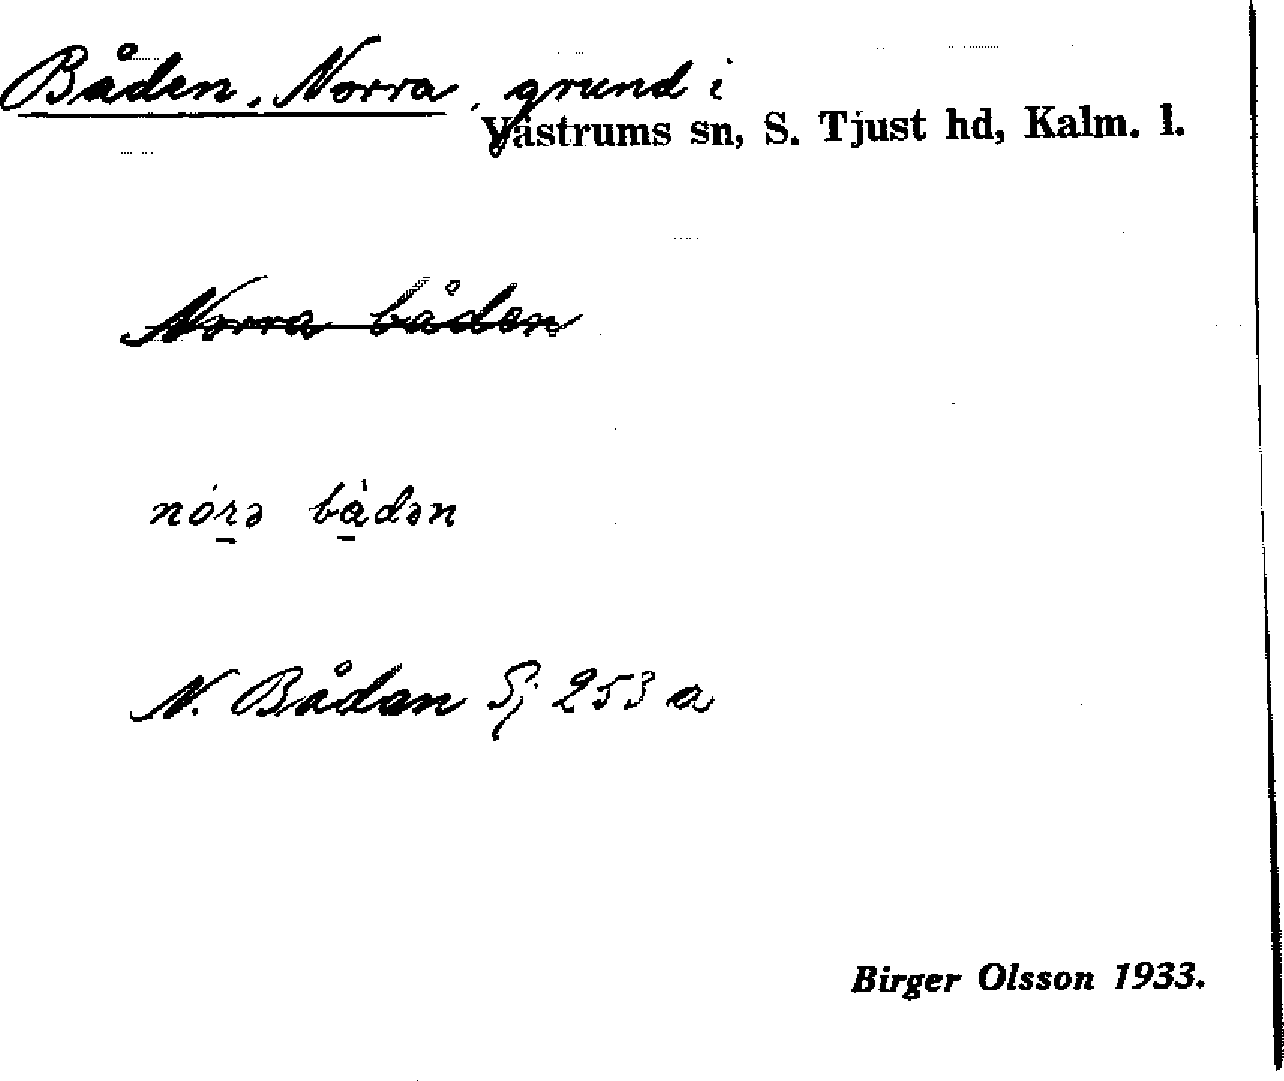 Båden, Norra, grund i
Västrums sn, S. Tjust hd, Kalm. l.
Norra båden
nórə bàdən
N. Båden Sj 253 a
Birger Olsson 1933.